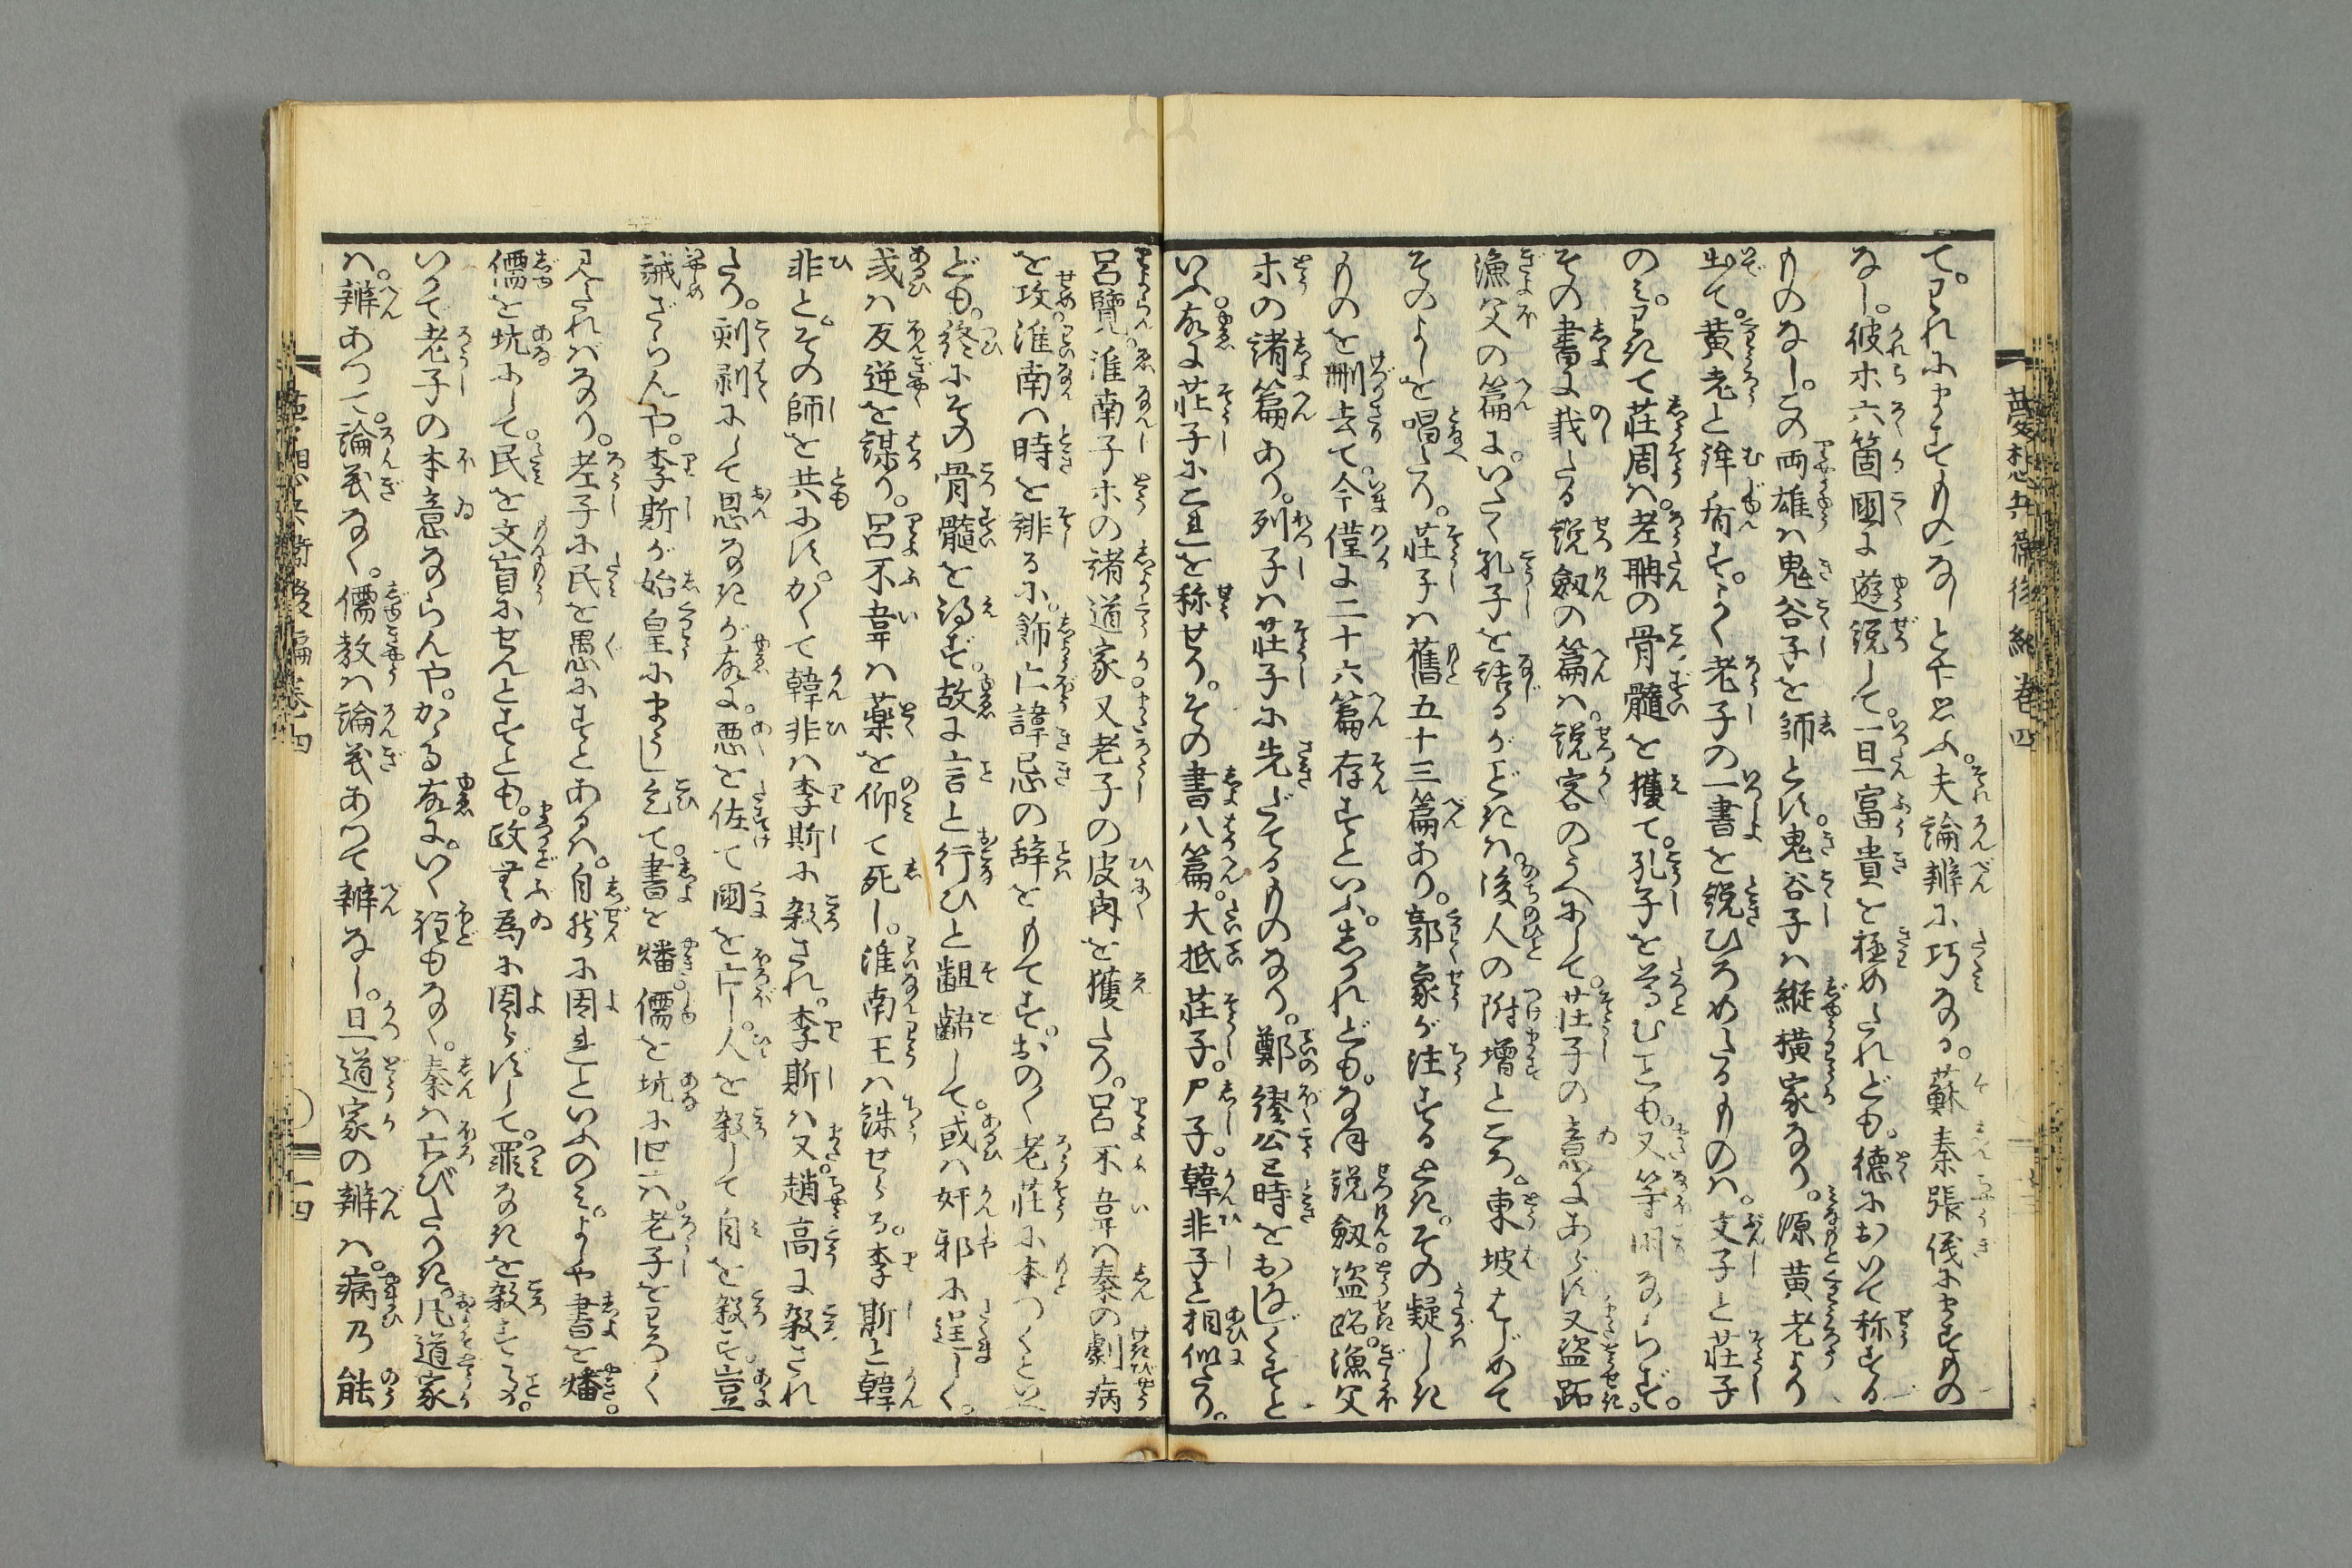 夢想兵衛後編 巻四
て。われにますものなしと思ふ。夫論辨に巧なる。蘇秦張儀にますもの
なし。彼木六箇國に遊説して。一旦冨貴を極めたれども。徳において称する
ものなし。この両雄は鬼谷子を師とす。鬼谷子は縦横家なり。源黄老より
出て。黄老と鉾盾す。よく老子の一書を説ひろめたるものは。文子と荘子
のみ。わきて荘周は。老聃の骨髓を獲て。孔子を尊むこと。又等閑ならず。
その書に載たる説劔の篇は。説客のうへにして。荘子の意にあらず又盗跖
漁父の篇に。いたく孔子を詰るがごときは。後人の附増ところ。東坡はじめて
そのよしを唱たり。荘子は舊五十三篇あり。郭象が注するとき。その疑しき
ものを刪去て。今僅に二十六篇存すといふ。しかれども。なほ説劔。盗跖。漁父
木の諸篇あり。列子は荘子に先だてるものなり。鄭繆公と時をおなじくすと
いふ。故に荘子にこれを称せり。その書八篇。大抵荘子。尸子。韓非子と相似たり。
呂覽。淮南子木の諸道家又老子の皮肉を獲たり。呂不韋は秦の劇病
を攻。淮南は時を誹るに。飾亡諱忌の辞をもてす。おの〱老荘に本つくといへ
ども。終にその骨髓を得ず。故に言と行ひと齟齬して。或は奸邪に逞しく。
或は反逆を謀り。呂不韋は藥を仰て死し。淮南王は誅せらる。李斯と韓
非と。その師を共にす。かくて韓非は李斯に殺され。李斯は又趙高に殺され
たり。刻剥にして恩なきが故に。悪を佐て國を亡し。人を殺して自を殺す。豈
誡ざらんや。李斯が始皇にまうし乞て。書を燔儒を坑にせしは。老子をわろく
見たればなり。老子に民を愚にすとあるは。自然に因れといふのみ。よしや書を燔。
儒を坑にして。民を文盲にせんとすとも。政無為に因らずして。罪なきを殺すこと。
いかで老子の本意ならんや。かゝる故に。いく程もなく。秦は亡びたりき。凡道家
は。辨あつて。論義なく。儒教は論義あつて辨なし。且道家の辨は。病乃能
夢想兵衛後編 巻四
十四